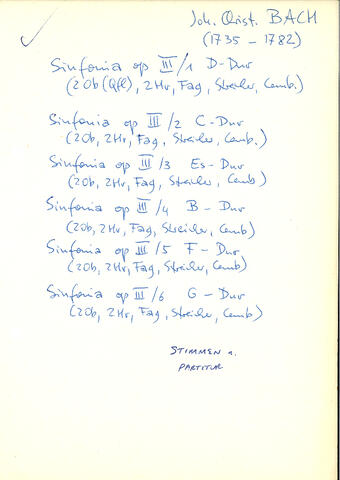 Joh. Christ. BACH
(1735 - 1782)
Sinfonia op III/1 D-Dur
(2 Ob (Qfl), 2 Hr, Fag, Streicher, Cemb.)
Sinfonia op III/2 C-Dur
(2 Ob, 2 Hr, Fag, Streicher, Cemb.)
Sinfonia op III/3 Es-Dur
(2 Ob, 2 Hr, Fag, Streicher, Cemb)
Sinfonia op III/4 B-Dur
(2 Ob, 2 Hr, Fag, Streicher, Cemb)
Sinfonia op III/5 F-Dur
(2 Ob, 2 Hr, Fag, Streicher, Cemb)
Sinfonia op III/6 G-Dur
(2 Ob, 2 Hr, Fag, Streicher, Cemb)
STIMMEN u.
PARTITUR